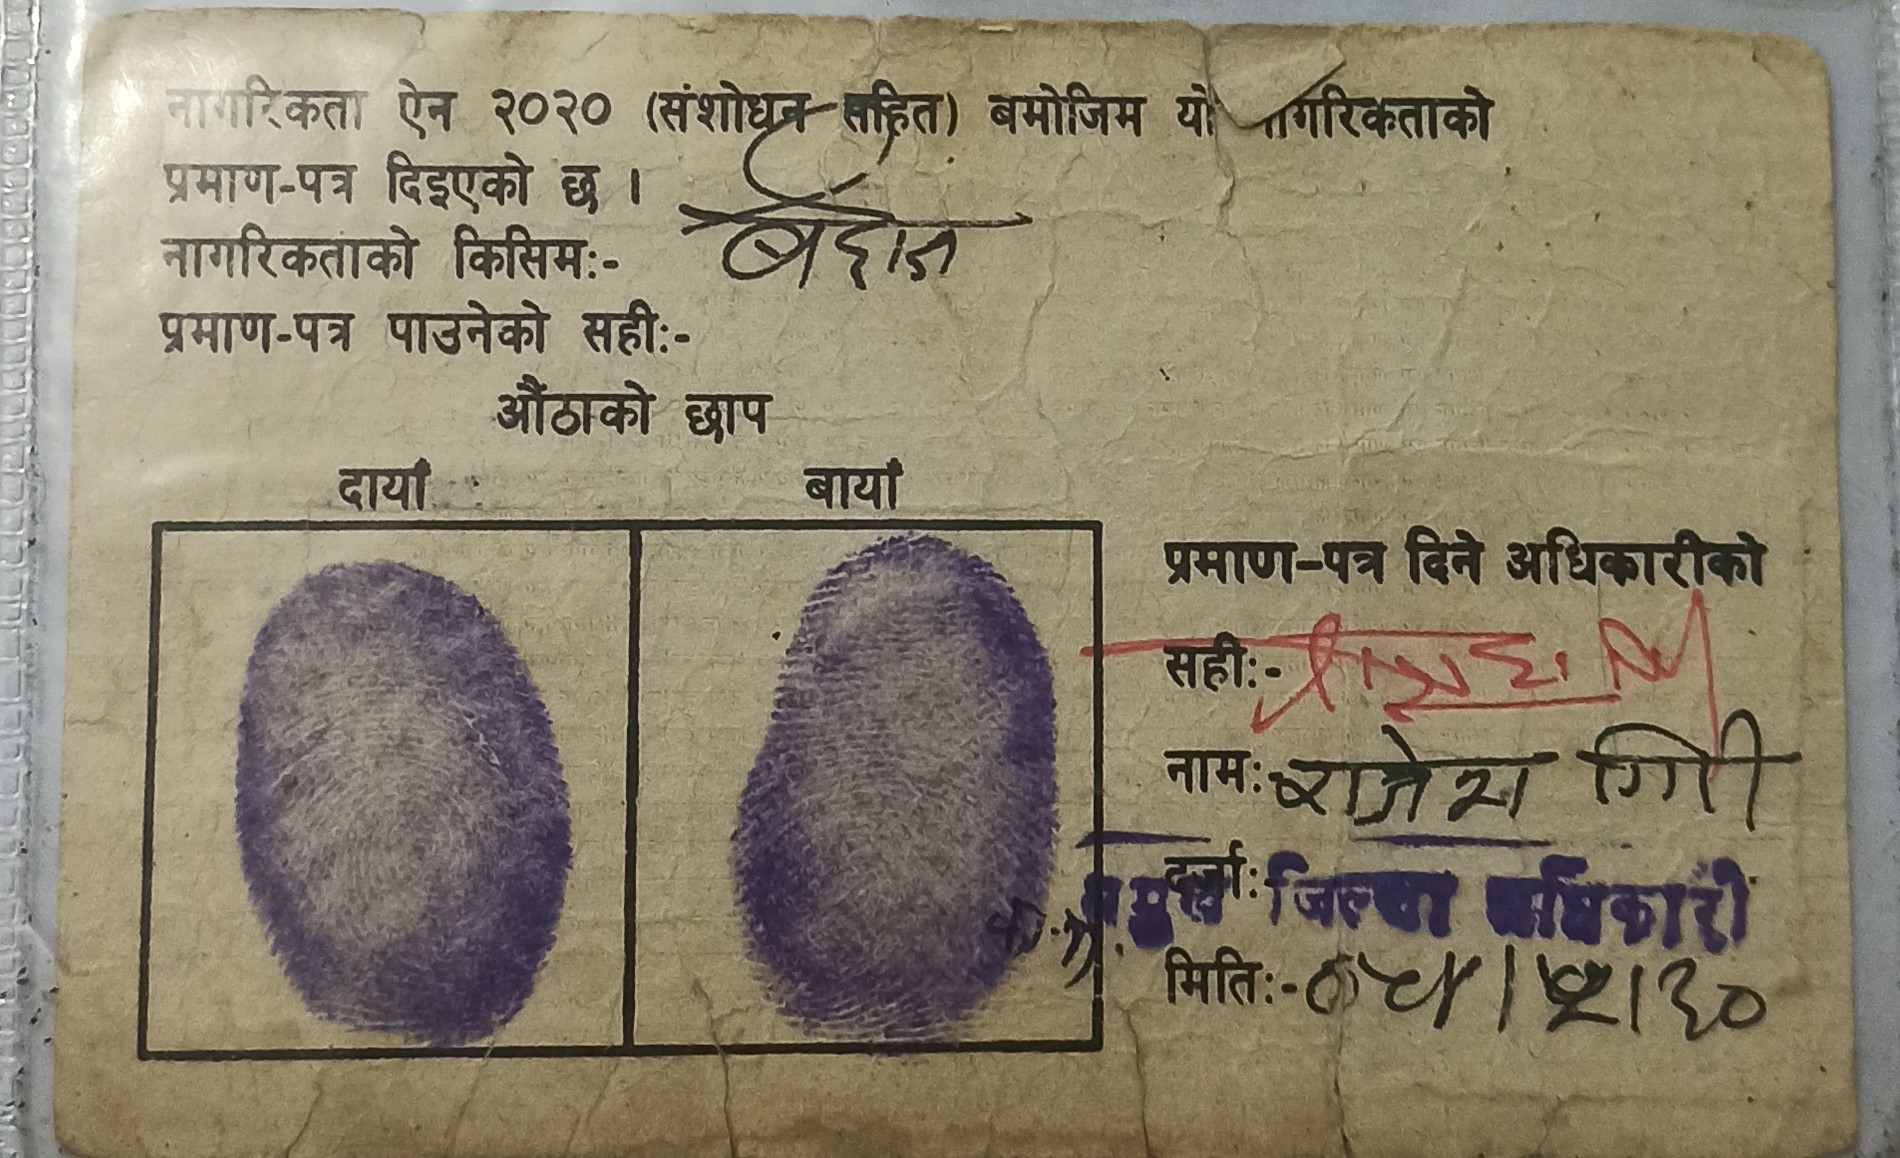 नागरिकता ऐन २०२० (संशोधन सहित) बमोजिम यो नागरिकताको
प्रमाण-पत्र दिइएको छ ।
नागरिकताको किसिम:-
प्रमाण-पत्र पाउनेको सही:-
औंठाको छाप
दायाँ बायाँ
प्रमाण-पत्र दिने अधिकारीको
सही:-
नाम:
दर्जा: प्रमुख जिल्ला अधिकारी
मिति:-